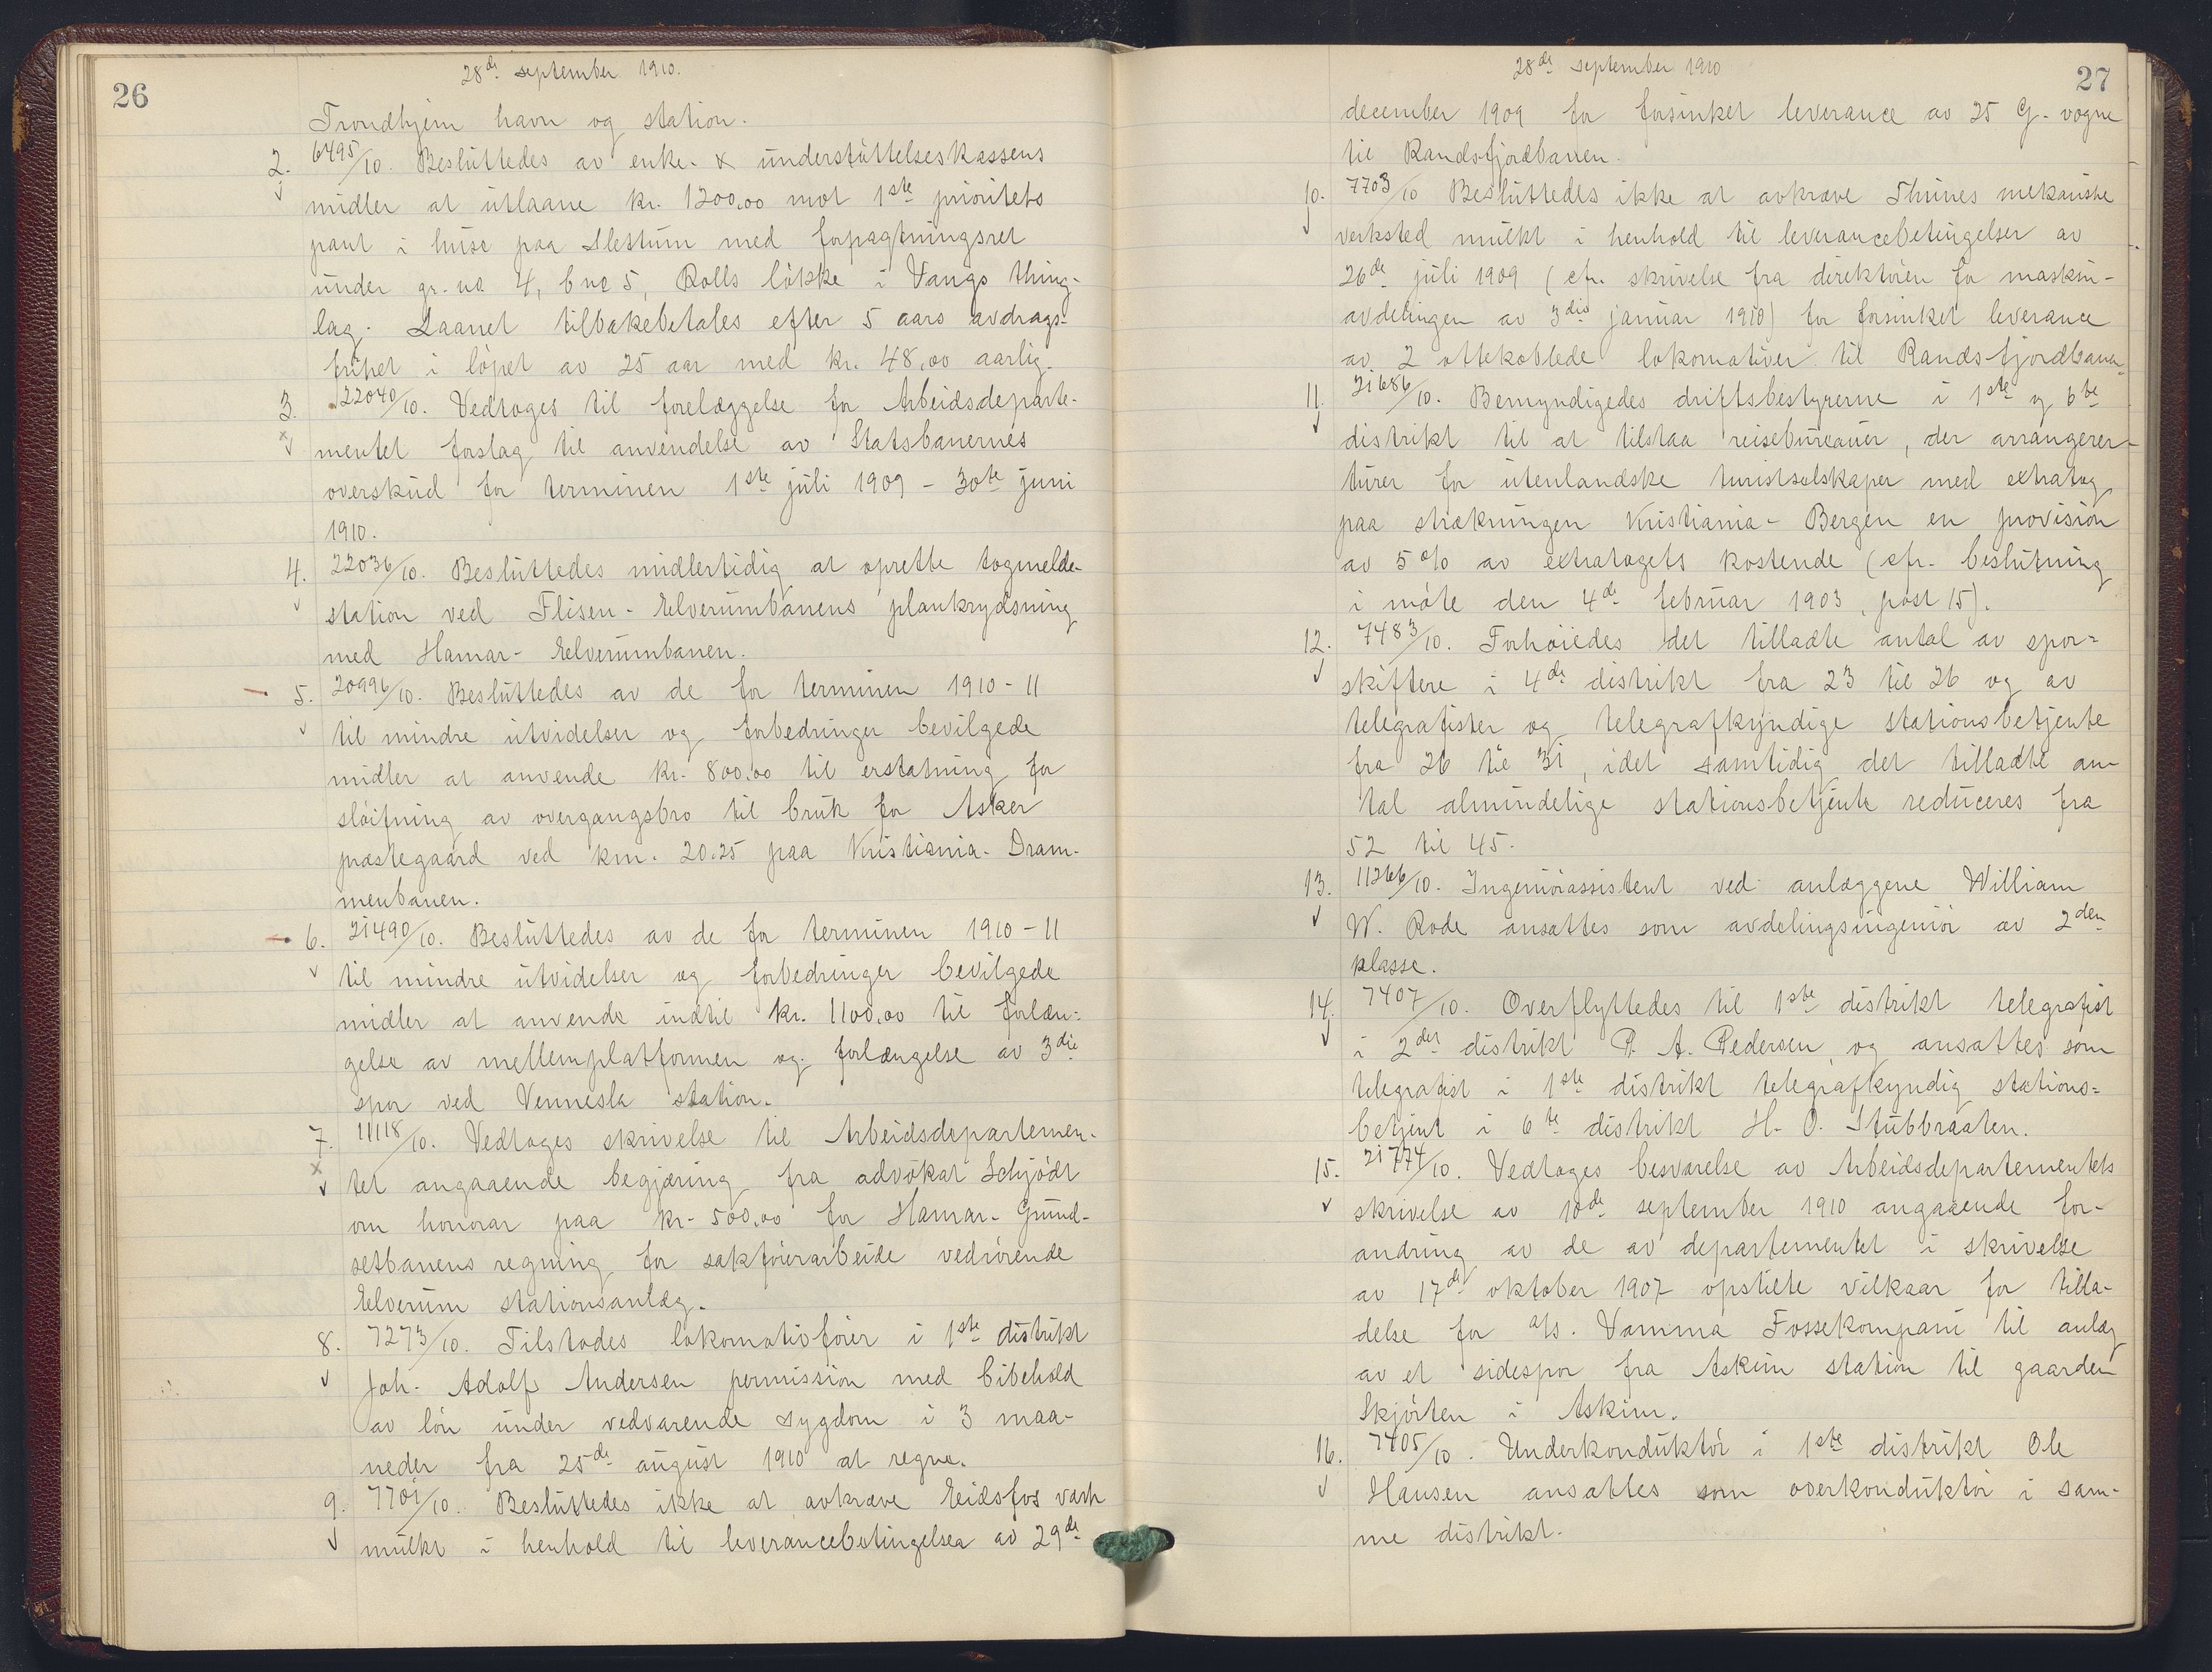 26
28de september 1910.
Trondhjem havn og station.
2. 6495/10. Besluttedes av enke- & understøttelseskassens
midler at utlaane kr. 1200,00 mot 1ste prioritets
pant i huse paa Slettum med forpagtningsret
under gr. no 4, b no 5, Rolls løkke i Vangs thing-
lag. Laanet tilbakebetales efter 5 aars avdrags-
frihet i løpet av 25 aar med kr. 48,00 aarlig.
3. 22040/10. Vedtoges til forelæggelse for Arbeidsdeparte-
mentet forslag til anvendelse av Statsbanernes
overskud for terminen 1ste juli 1909 - 30te juni
1910.
4. 22036/10. Besluttedes midlertidig at oprette togmelde-
station ved Flisen-Elverumbanens plankrydsning
med Hamar-Elverumbanen.
5. 20996/10. Besluttedes av de for terminen 1910-11
til mindre utvidelser og forbedringer bevilgede
midler at anvende kr. 800,00 til erstatning for
sløifning av overgangsbro til bruk for Asker
præstegaard ved km. 20.25 paa Kristiania-Dram-
menbanen.
6. 21490/10. Besluttedes av de for terminen 1910-11
til mindre utvidelser og forbedringer bevilgede
midler at anvende indtil kr. 1100,00 til forlæn-
gelse av mellemplatformen og forlængelse av 3die
spor ved Vennesla station.
7. 11118/10. Vedtoges skrivelse til Arbeidsdepartemen-
tet angaaende begjæring fra advokat Schjødt
om honorar paa kr. 500,00 for Hamar-Grund-
setbanens regning for sakførerarbeide vedrørende
Elverum stationsanlæg.
8. 7273/10. Tilstodes lokomotivfører i 1ste distrikt
Joh. Adolf Andersen permission med bibehold
av løn under vedvarende sygdom i 3 maa-
neder fra 25de august 1910 at regne.
9. 7701/10. Besluttedes ikke at avkræve Eidsfos værk
mulkt i henhold til leverancebetingelser av 29de
27
28de september 1910
december 1909 for forsinket leverance av 25 G. vogne
til Randsfjordbanen.
10. 7703/10 Besluttedes ikke at avkræve Thunes mekaniske
verksted mulkt i henhold til leverancebetingelser av
26de juli 1909 (cfr. skrivelse fra direktøren for maskin-
avdelingen av 3die januar 1910) for forsinket leverance
av 2 ottekoblede lokomotiver til Randsfjordbanen
11. 21686/10. Bemyndigedes driftsbestyrerne i 1ste og 6te
distrikt til at tilstaa reisebureauer, der arrangerer
turer for utenlandske turistselskaper med extratog
paa strækningen Kristiania-Bergen en provision
av 5 % av extratogets kostende (cfr. beslutning
i møte den 4de februar 1903, post 15).
12. 7483/10. Forhøiedes det tilladte antal av spor-
skiftere i 4de distrikt fra 23 til 26 og av
telegrafister og telegrafkyndige stationsbetjente
fra 26 til 31, idet samtidig det tilladte an-
tal almindelige stationsbetjente reduceres fra
52 til 45.
13. 11266/10. Ingeniørassistent ved anlæggene William
W. Rode ansattes som avdelingsingeniør av 2den
klasse.
14. 7407/10. Overflyttedes til 1ste distrikt telegrafist
i 2det distrikt P. A. Pedersen, og ansattes som
telegrafist i 1ste distrikt telegrafkyndig stations-
betjent i 6te distrikt H. O. Stubbraaten.
15. 21774/10. Vedtoges besvarelse av Arbeidsdepartementets
skrivelse av 10de september 1910 angaaende for-
andring av de av departementet i skrivelse
av 17de oktober 1907 opstilte vilkaar for tilla-
delse for a/s. Vamma Fossekompani til anlæg
av et sidespor fra Askim station til gaarden
Skjørten i Askim.
16. 7405/10. Underkonduktør i 1ste distrikt Ole
Hansen ansattes som overkonduktør i sam-
me distrikt.